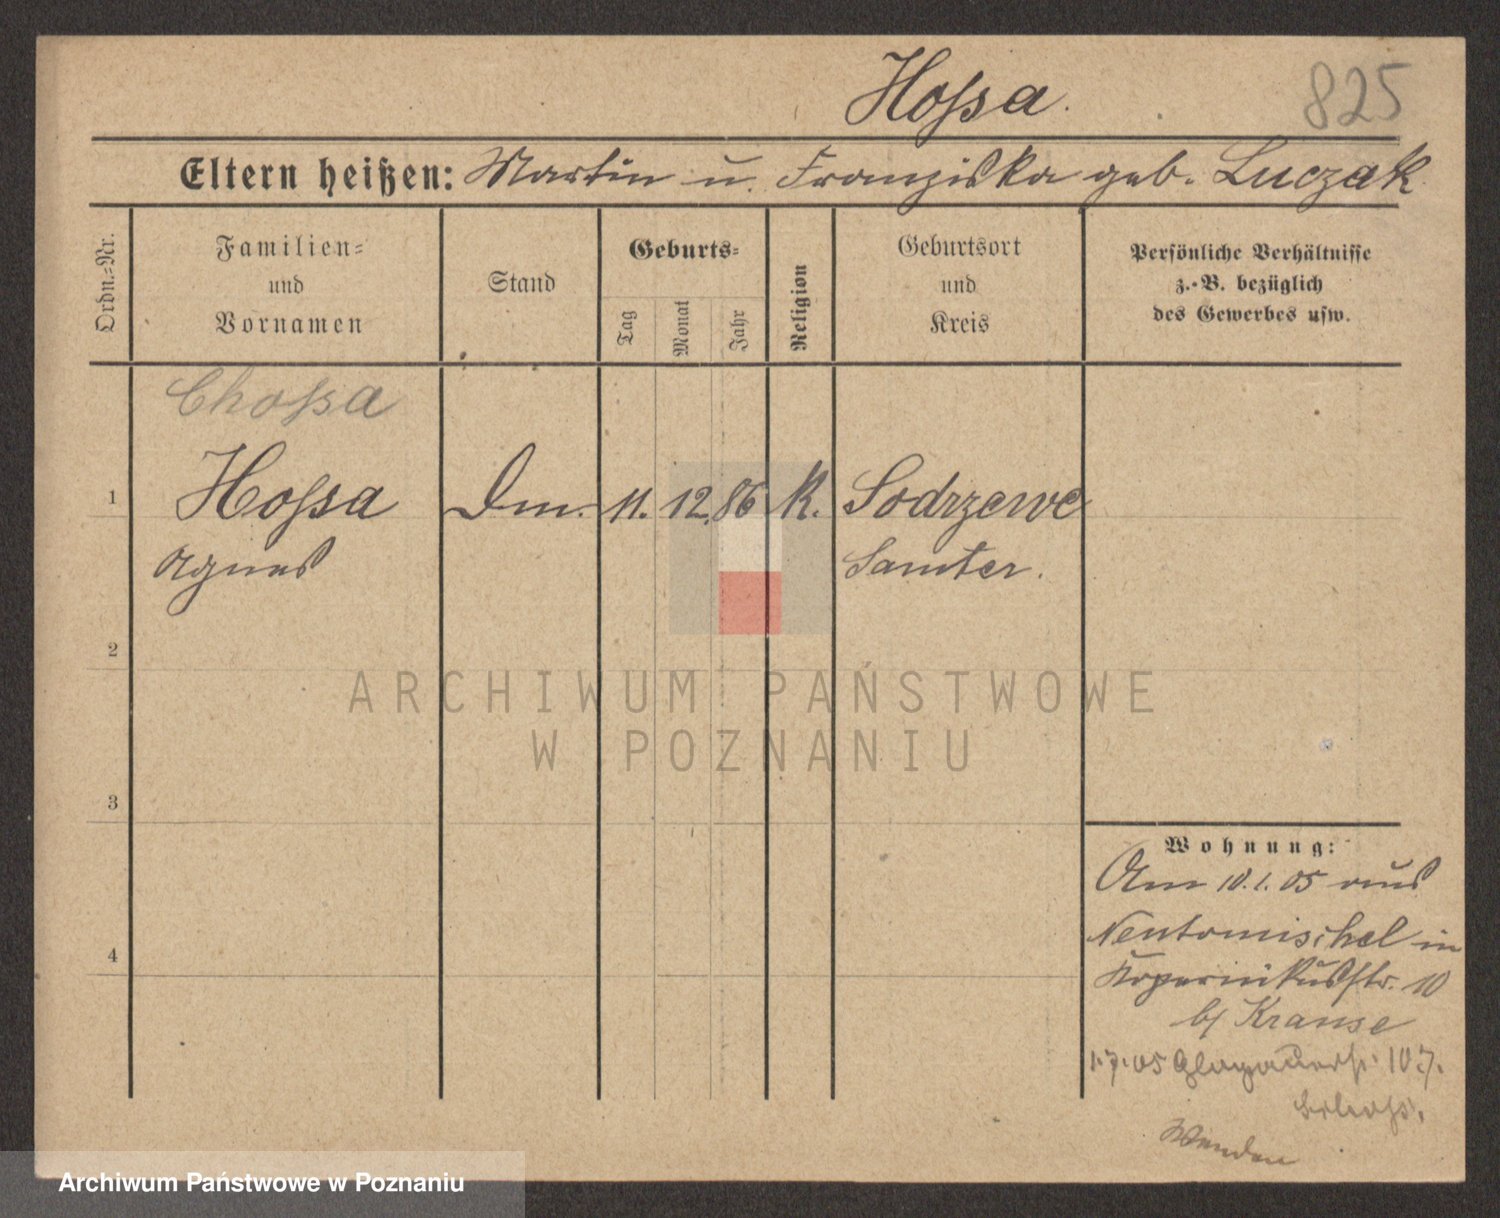 Hossa.
825
Eltern heißen: Martin u. Franziska geb. Luczak
Ordn.-Nr.
Familien- und Vornamen
Stand
Geburts-
Tag
Monat
Jahr
Religion
Geburtsort und Kreis
Persönliche Verhältnisse
z. B. bezüglich
des Gewerbes usw.
Chossa
1 Hossa Dm. 11. 12. 86 K. Sodrzewe
Agnes Samter.
2
3
4
Wohnung:
Am 10.1.05 aus
Neutomischel in
Kopernikusstr. 10
b/ Krause
1.7.05 Glogauerstr. 107.
Wenden
ARCHIWUM PAŃSTWOWE
W POZNANIU
Archiwum Państwowe w Poznaniu